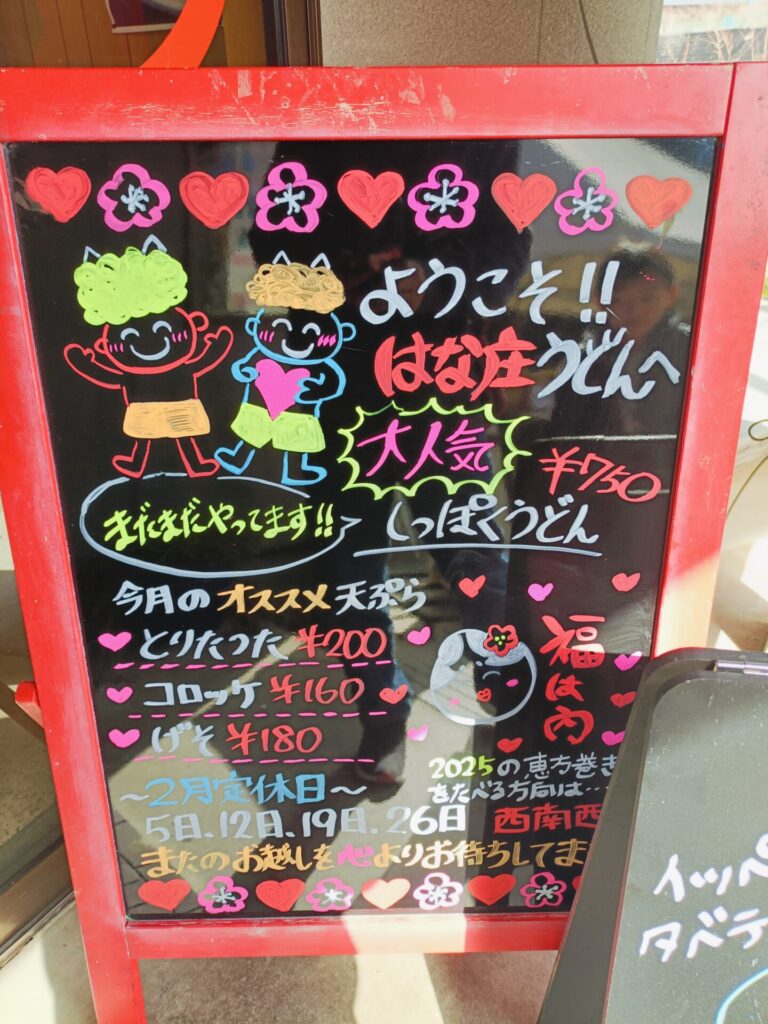 ようこそ!!
はな庄うどんへ
大人気
¥750
まだまだやってます!!
しっぽくうどん
今月のオススメ天ぷら
とりたつた ¥200
コロッケ ¥160
げそ ¥180
福は内
2025の恵方巻き
をたべる方向は…
西南西
~2月定休日~
5日、12日、19日、26日
またのお越しを心よりお待ちしてま
イッペ
タベテ